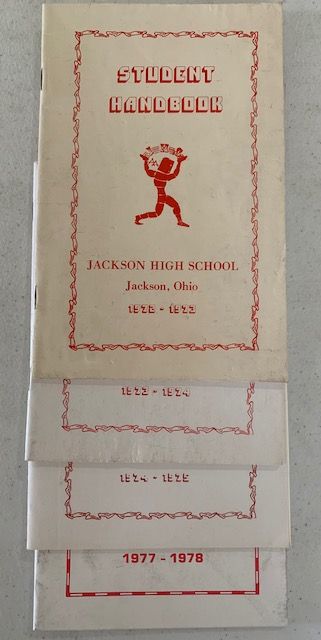 STUDENT
HANDBOOK
JACKSON HIGH SCHOOL
Jackson, Ohio
1972 - 1973
1973 - 1974
1974 - 1975
1977 - 1978